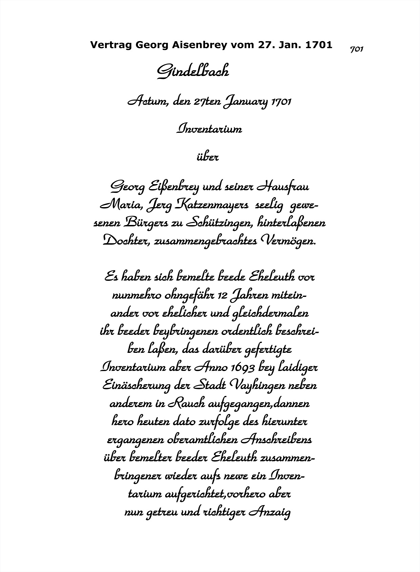 Vertrag Georg Aisenbrey vom 27. Jan. 1701
701
Gindelbach
Actum, den 27ten January 1701
Inventarium
über
Georg Eißenbrey und seiner Hausfrau
Maria, Jerg Katzenmayers seelig gewe-
senen Bürgers zu Schützingen, hinterlaßenen
Dochter, zusammengebrachtes Vermögen.
Es haben sich bemelte beede Eheleuth vor
nunmehro ohngefähr 12 Jahren mitein-
ander vor ehelicher und gleichdermalen
ihr beeder beybringenen ordentlich beschrei-
ben laßen, das darüber gefertigte
Inventarium aber Anno 1693 bey laidiger
Einäscherung der Stadt Vayhingen neben
anderem in Rauch aufgegangen,dannen
hero heuten dato zurfolge des hierunter
ergangenen oberamtlichen Anschreibens
über bemelter beeder Eheleuth zusammen-
bringener wieder aufs newe ein Inven-
tarium aufgerichtet,vorhero aber
nun getreu und richtiger Anzaig